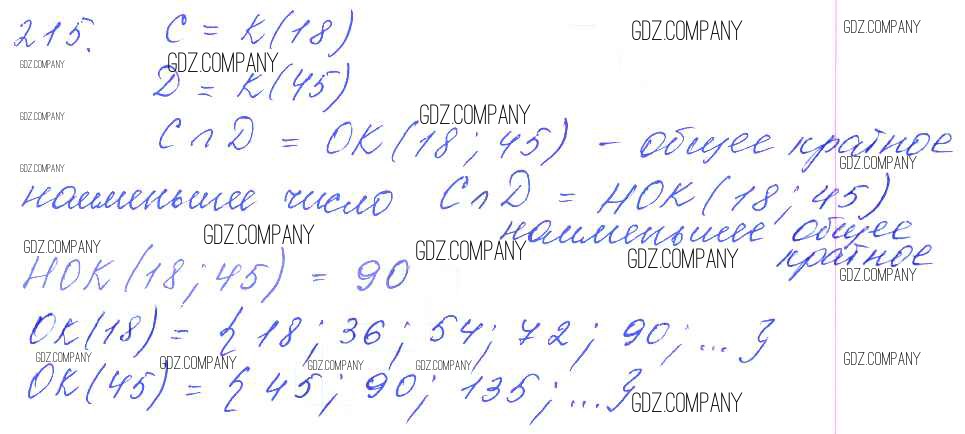 215. C = К(18)
GDZ.COMPANY GDZ.COMPANY
GDZ.COMPANY GDZ.COMPANY
Д = К(45)
GDZ.COMPANY GDZ.COMPANY
C ∩ D = ОК(18; 45) – общее кратное
GDZ.COMPANY GDZ.COMPANY
наименьшее число C ∩ D = НОК(18; 45)
наименьшее общее
кратное
GDZ.COMPANY GDZ.COMPANY GDZ.COMPANY GDZ.COMPANY
НОК(18; 45) = 90
GDZ.COMPANY
ОК(18) = {18; 36; 54; 72; 90; ...}
GDZ.COMPANY GDZ.COMPANY GDZ.COMPANY GDZ.COMPANY GDZ.COMPANY
ОК(45) = {45; 90; 135; ...}
GDZ.COMPANY